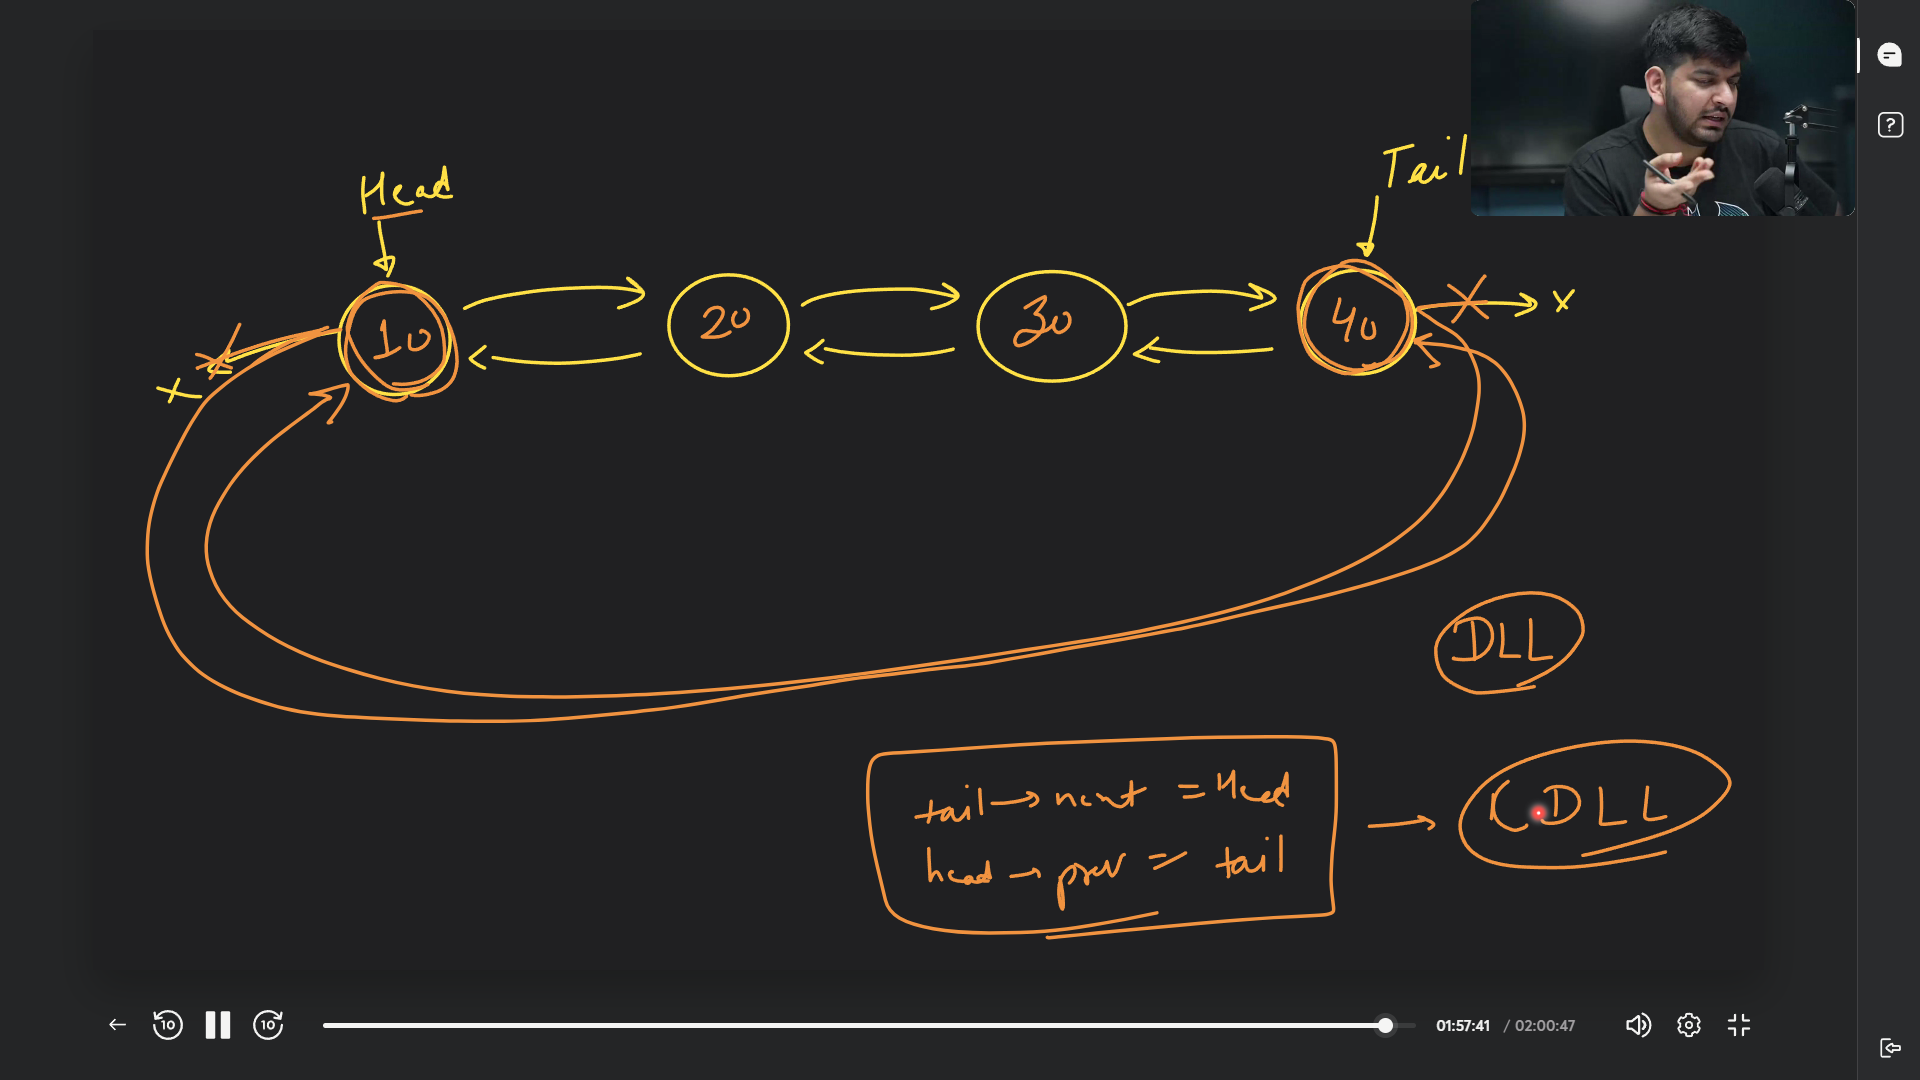 Head
Tail
10
20
30
40
x
x
DLL
tail → next = Head
head → prev = tail
→ CDLL
10
10
01:57:41 / 02:00:47
?